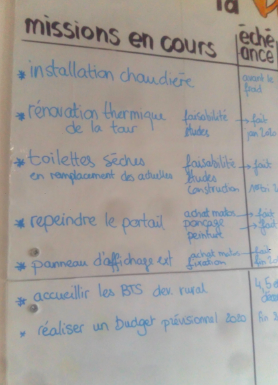 la
missions en cours
éché
ance
* installation chaudière
avant le
froid
* rénovation thermique faisabilité → fait
de la tour études
* toilettes sèches faisabilité → fait
en remplacement des actuelles études
construction
* repeindre le portail achat matos → fait
ponçage → fait
peinture
* panneau d'affichage ext achat matos → fait
fixation → fin
* accueillir les BTS dev rural 4,5
* réaliser un budget prévisionnel 2020 fin